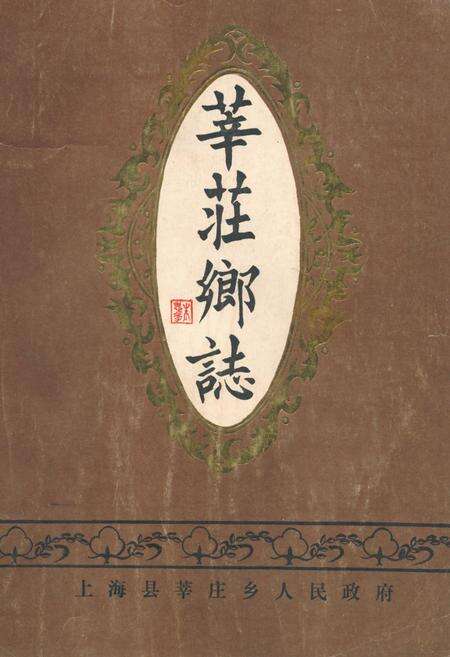 莘莊鄉誌
上海县莘庄乡人民政府